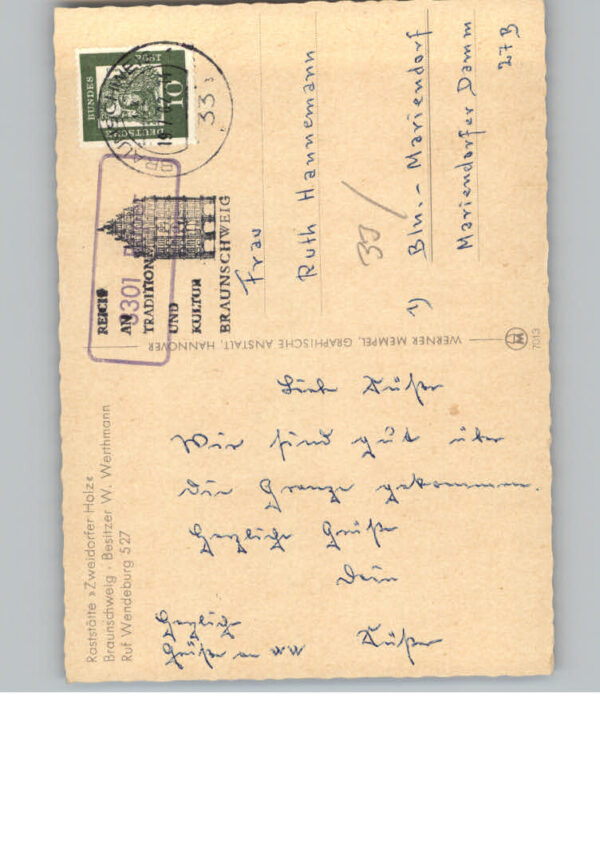 Raststätte »Zweidorfer Holz«
Braunschweig · Besitzer W. Werthmann
Ruf Wendeburg 527
Wir sind gut über
die Grenze gekommen.
Herzliche Grüße
Dein
Herzliche
Grüße an
WERNER MEMPEL, GRAPHISCHE ANSTALT, HANNOVER
7013
3301
REICH
AN
TRADITION
UND
KULTUR
BRAUNSCHWEIG
DEUTSCHE
BUNDES
10
BRAUNSCHWEIG
33
Frau
Ruth Hannemann
1) Bln.-Mariendorf
Mariendorfer Damm
27B
33/